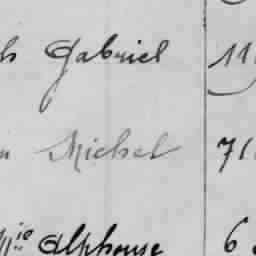 Gabriel 11
Michel 71
Alphonse 6